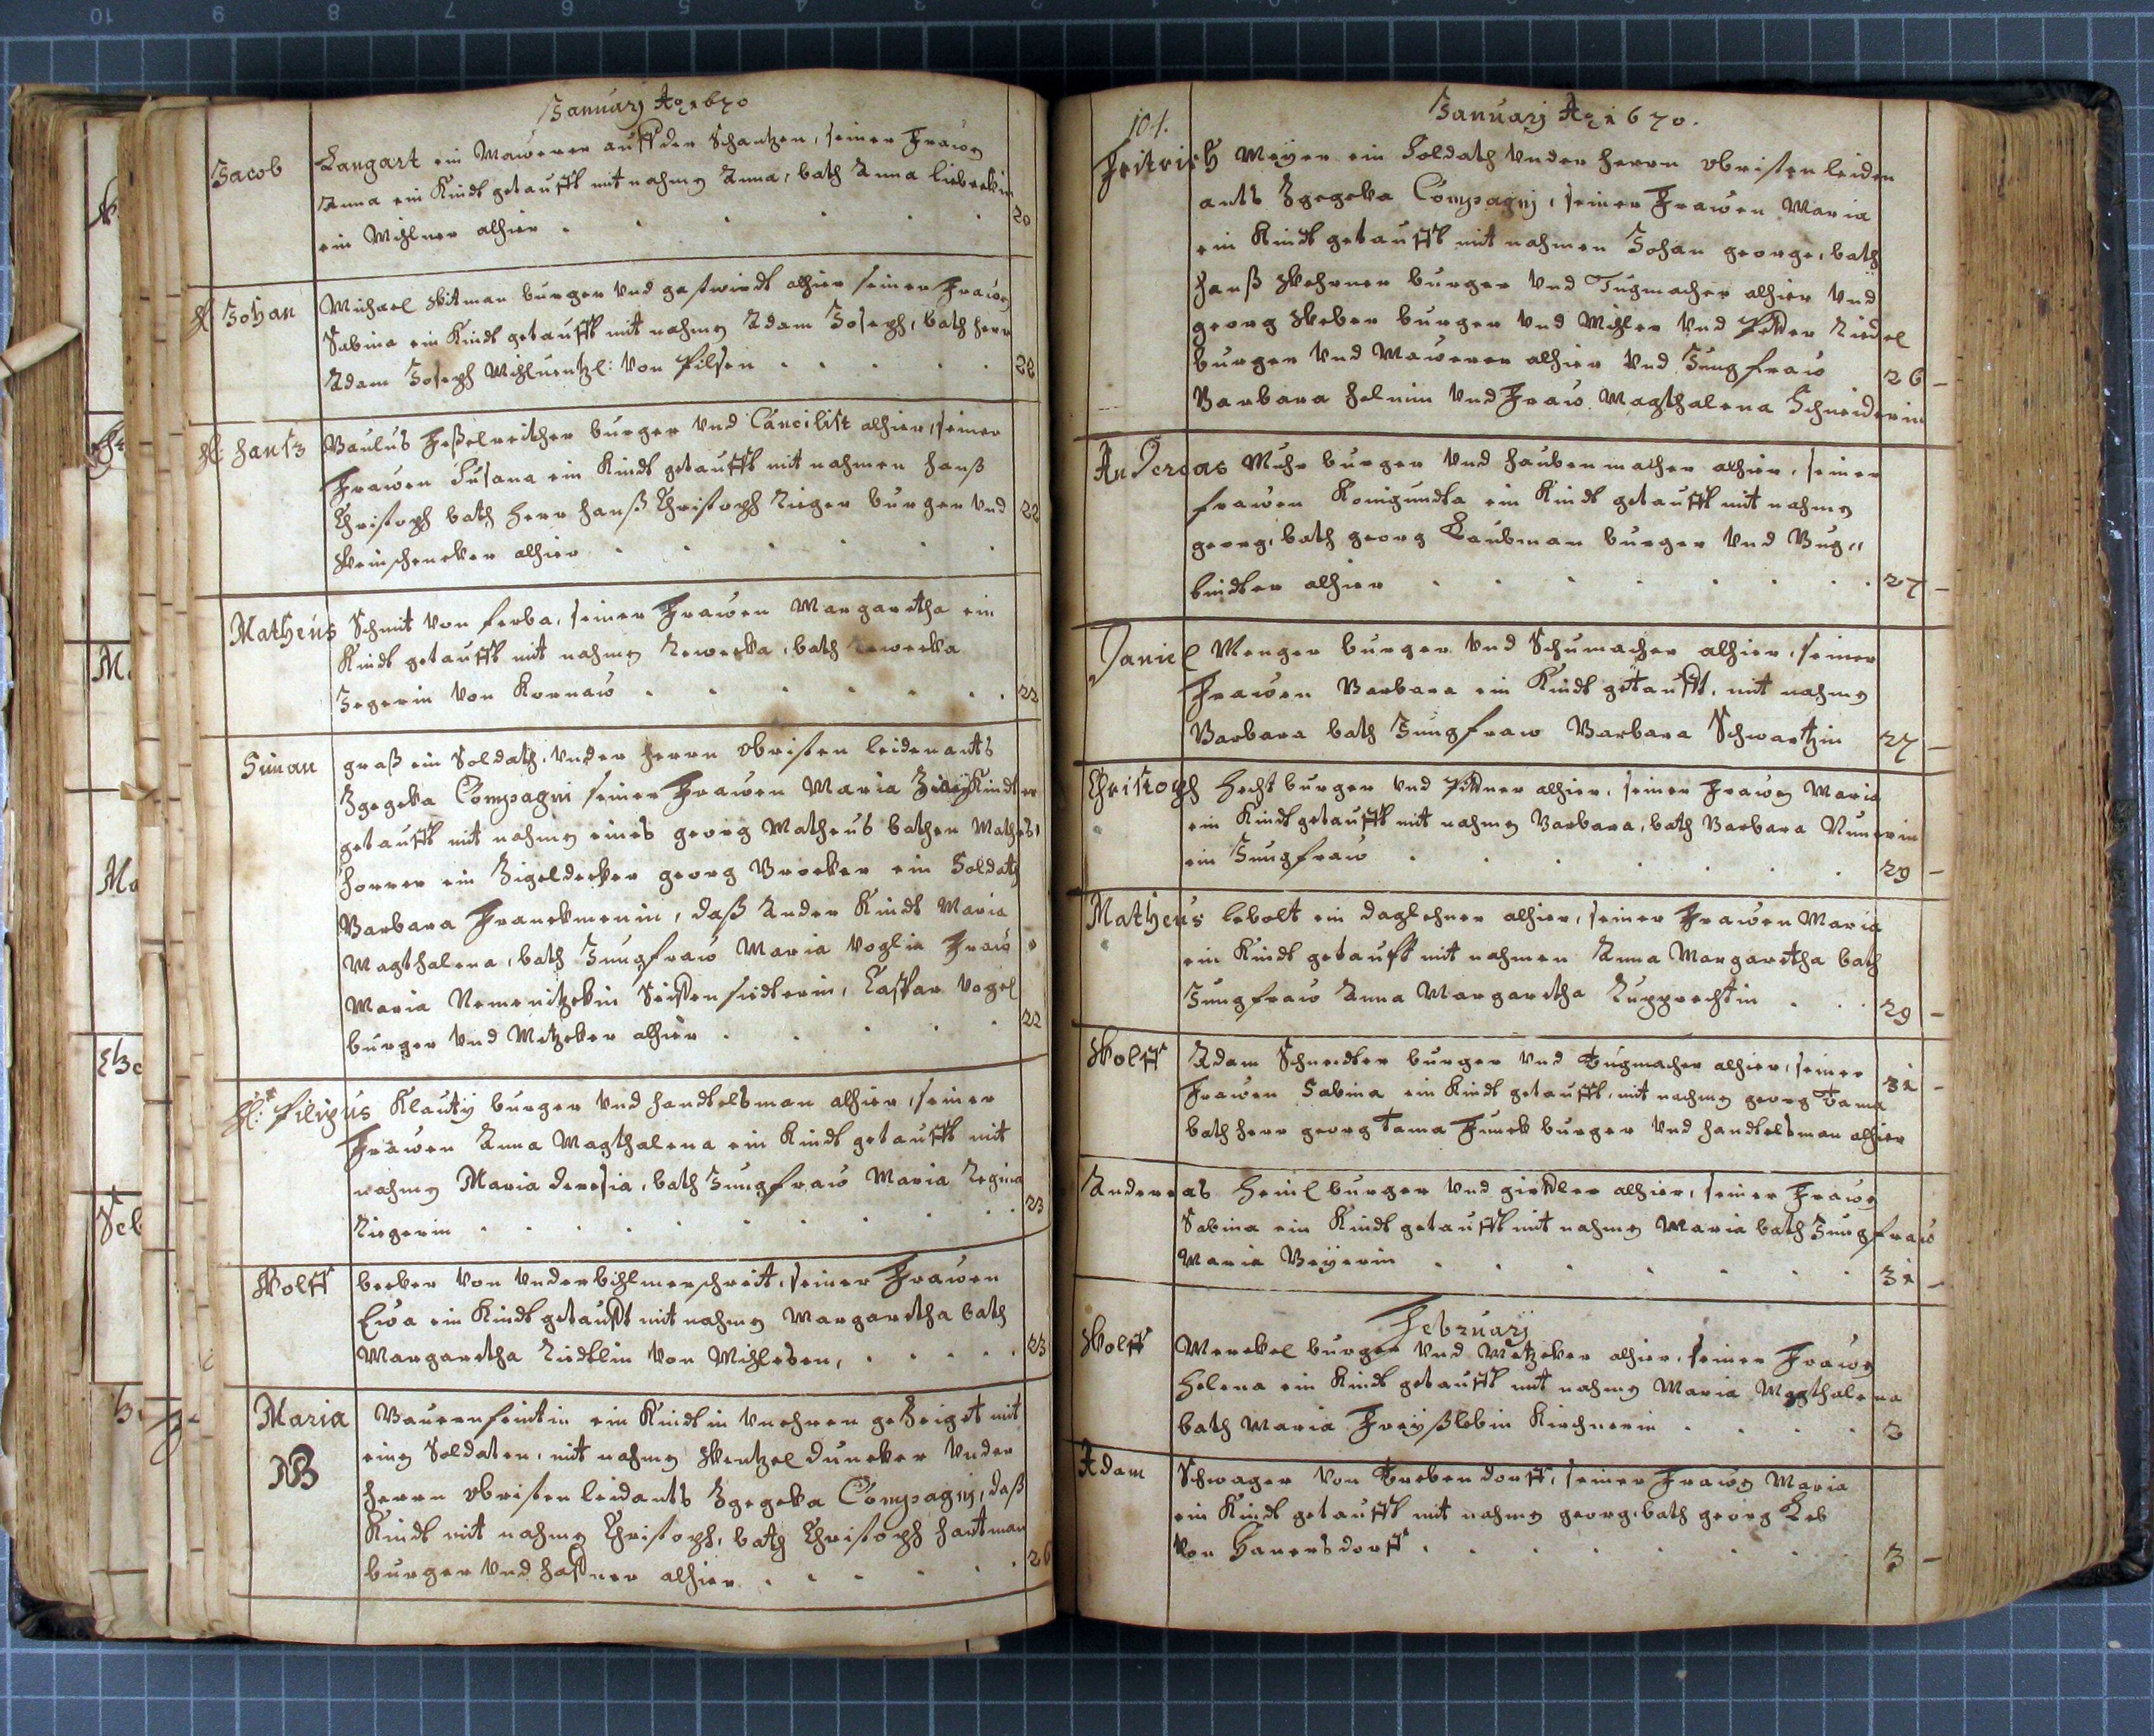 Januarj Ao 1670
Jacob Langart ein Mawerer auff der Schantzen, seiner Frawen
Anna ein Kindt getaufft mit nahmen Anna, bath Anna
ein Mihlner alhier . 20
H: Johan Michael Witman burger Vnd gastwirdt alhier seiner Frawen
Sabina ein Kindt getaufft mit nahmen Adam Joseph, bath herr
Adam Joseph Von Pilsen . 22
H: Hantz Paulus burger Vnd Cancilist alhier, seiner
Frawen Susana ein Kindt getaufft mit nahmen Hanß
Christoph bath Herr Hanß Christoph Rieger burger Vnd 22
Weinschencker alhier .
Matheus Schmit Von ferba, seiner Frawen Margaretha ein
Kindt getaufft mit nahmen Rewecka, bath Rewecka
Von Kornaw . 22
Siman graß ein Soldath, Vnder herrn obristen leidenants
Compagni seiner Frawen Maria Zwey Kinder
getaufft mit nahmen eines georg Matheus bathen Matheß
ein Zigeldecker georg Brocker ein Soldath
Barbara daß Ander Kindt Maria
Magthalena, bath Jungfraw Maria Voglin Fraw
Maria Seiffensiedterin, Caspar Vogel
burger Vnd Metzcker alhier . 22
H: Filipus Klauty burger Vnd handtelsman alhier, seiner
Frawen Anna Magthalena ein Kindt getaufft mit
nahmen Maria deresia, bath Jungfraw Maria Regina
Riegerin . 23
Wolff becker Von seiner Frawen
Ewa ein Kindt getaufft mit nahmen Margaretha bath
Margaretha Riedtlin Von Mihlesen, . 23
Maria Bauernfeintin ein Kindt in Vnehren geZeiget mit
NB einen Soldaten, mit nahmen Wentzel duncker Vnder
herrn obristen leidants Compagnj, daß
Kindt mit nahmen Christoph, bath Christoph Hartman
burger Vnd haffner alhier . 26
101.
Januarj Ao 1670.
Fritrich Meyer ein Soldath Vnder herrn obristen leiden
ants Compagnj, seiner Frawen Maria
ein Kindt getaufft mit nahmen Johan george, bath
Hanß burger Vnd Tugmacher alhier Vnd
georg Weber burger Vnd Mihler Vnd Riedel
burger Vnd Mawerer alhier Vnd Jungfraw 26 –
Barbara Vnd Fraw Magthalena Schneiderin
Andereas Muhr burger Vnd haubenmacher alhier, seiner
frawen Konigundta ein Kindt getaufft mit nahmen
georg, bath georg Laubman burger Vnd Bug„
bindter alhier . 27 –
Daniel Menger burger Vnd Schumacher alhier, seiner
Frawen Barbara ein Kindt getaufft, mit nahmen
Barbara bath Jungfraw Barbara Schwartzin 27 –
Christoph Hecht burger Vnd alhier, seiner Frawen Maria
ein Kindt getaufft mit nahmen Barbara, bath Barbara
ein Jungfraw . 29 –
Matheus lebolt ein daglehner alhier, seiner Frawen Maria
ein Kindt getaufft mit nahmen Anna Margaretha bath
Jungfraw Anna Margaretha Rupprechtin . 29 –
Wolff Adam Schneidter burger Vnd Tugmacher alhier, seiner 31 –
Frawen Sabina ein Kindt getaufft, mit nachmen georg Tama
bath herr georg Tama Funck burger Vnd handtelsman alhier
Andereas Heinl burger Vnd girdler alhier, seiner Frawen
Sabina ein Kindt getaufft mit nahmen Maria bath Jungfraw
Maria Beyerin . 31 –
Februarj
Wolff Merckel burger Vnd Metzcker alhier, seiner Frawen
Helena ein Kindt getaufft mit nahmen Maria Magthalena
bath Maria Kirchnerin . 3
Adam Schwager Von Trebendorff, seiner Frawen Maria
ein Kindt getaufft mit nahmen georg, bath georg Leb
Von Hanersdorff . 3 –